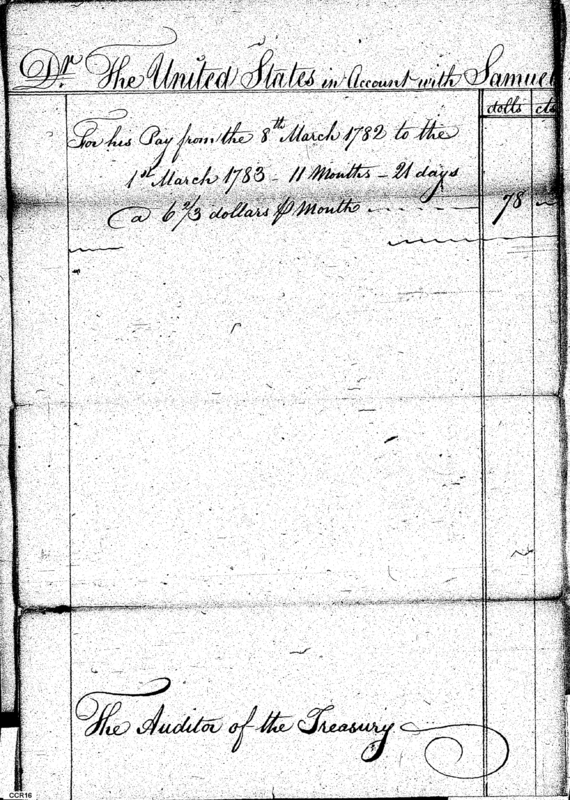 Dr The United States in Account with Samuel
dolls cts
For his Pay from the 8th March 1782 to the
1st March 1783 - 11 Months - 21 days
@ 6 2/3 dollars ⅌ Month 78 -
The Auditor of the Treasury
CCR16